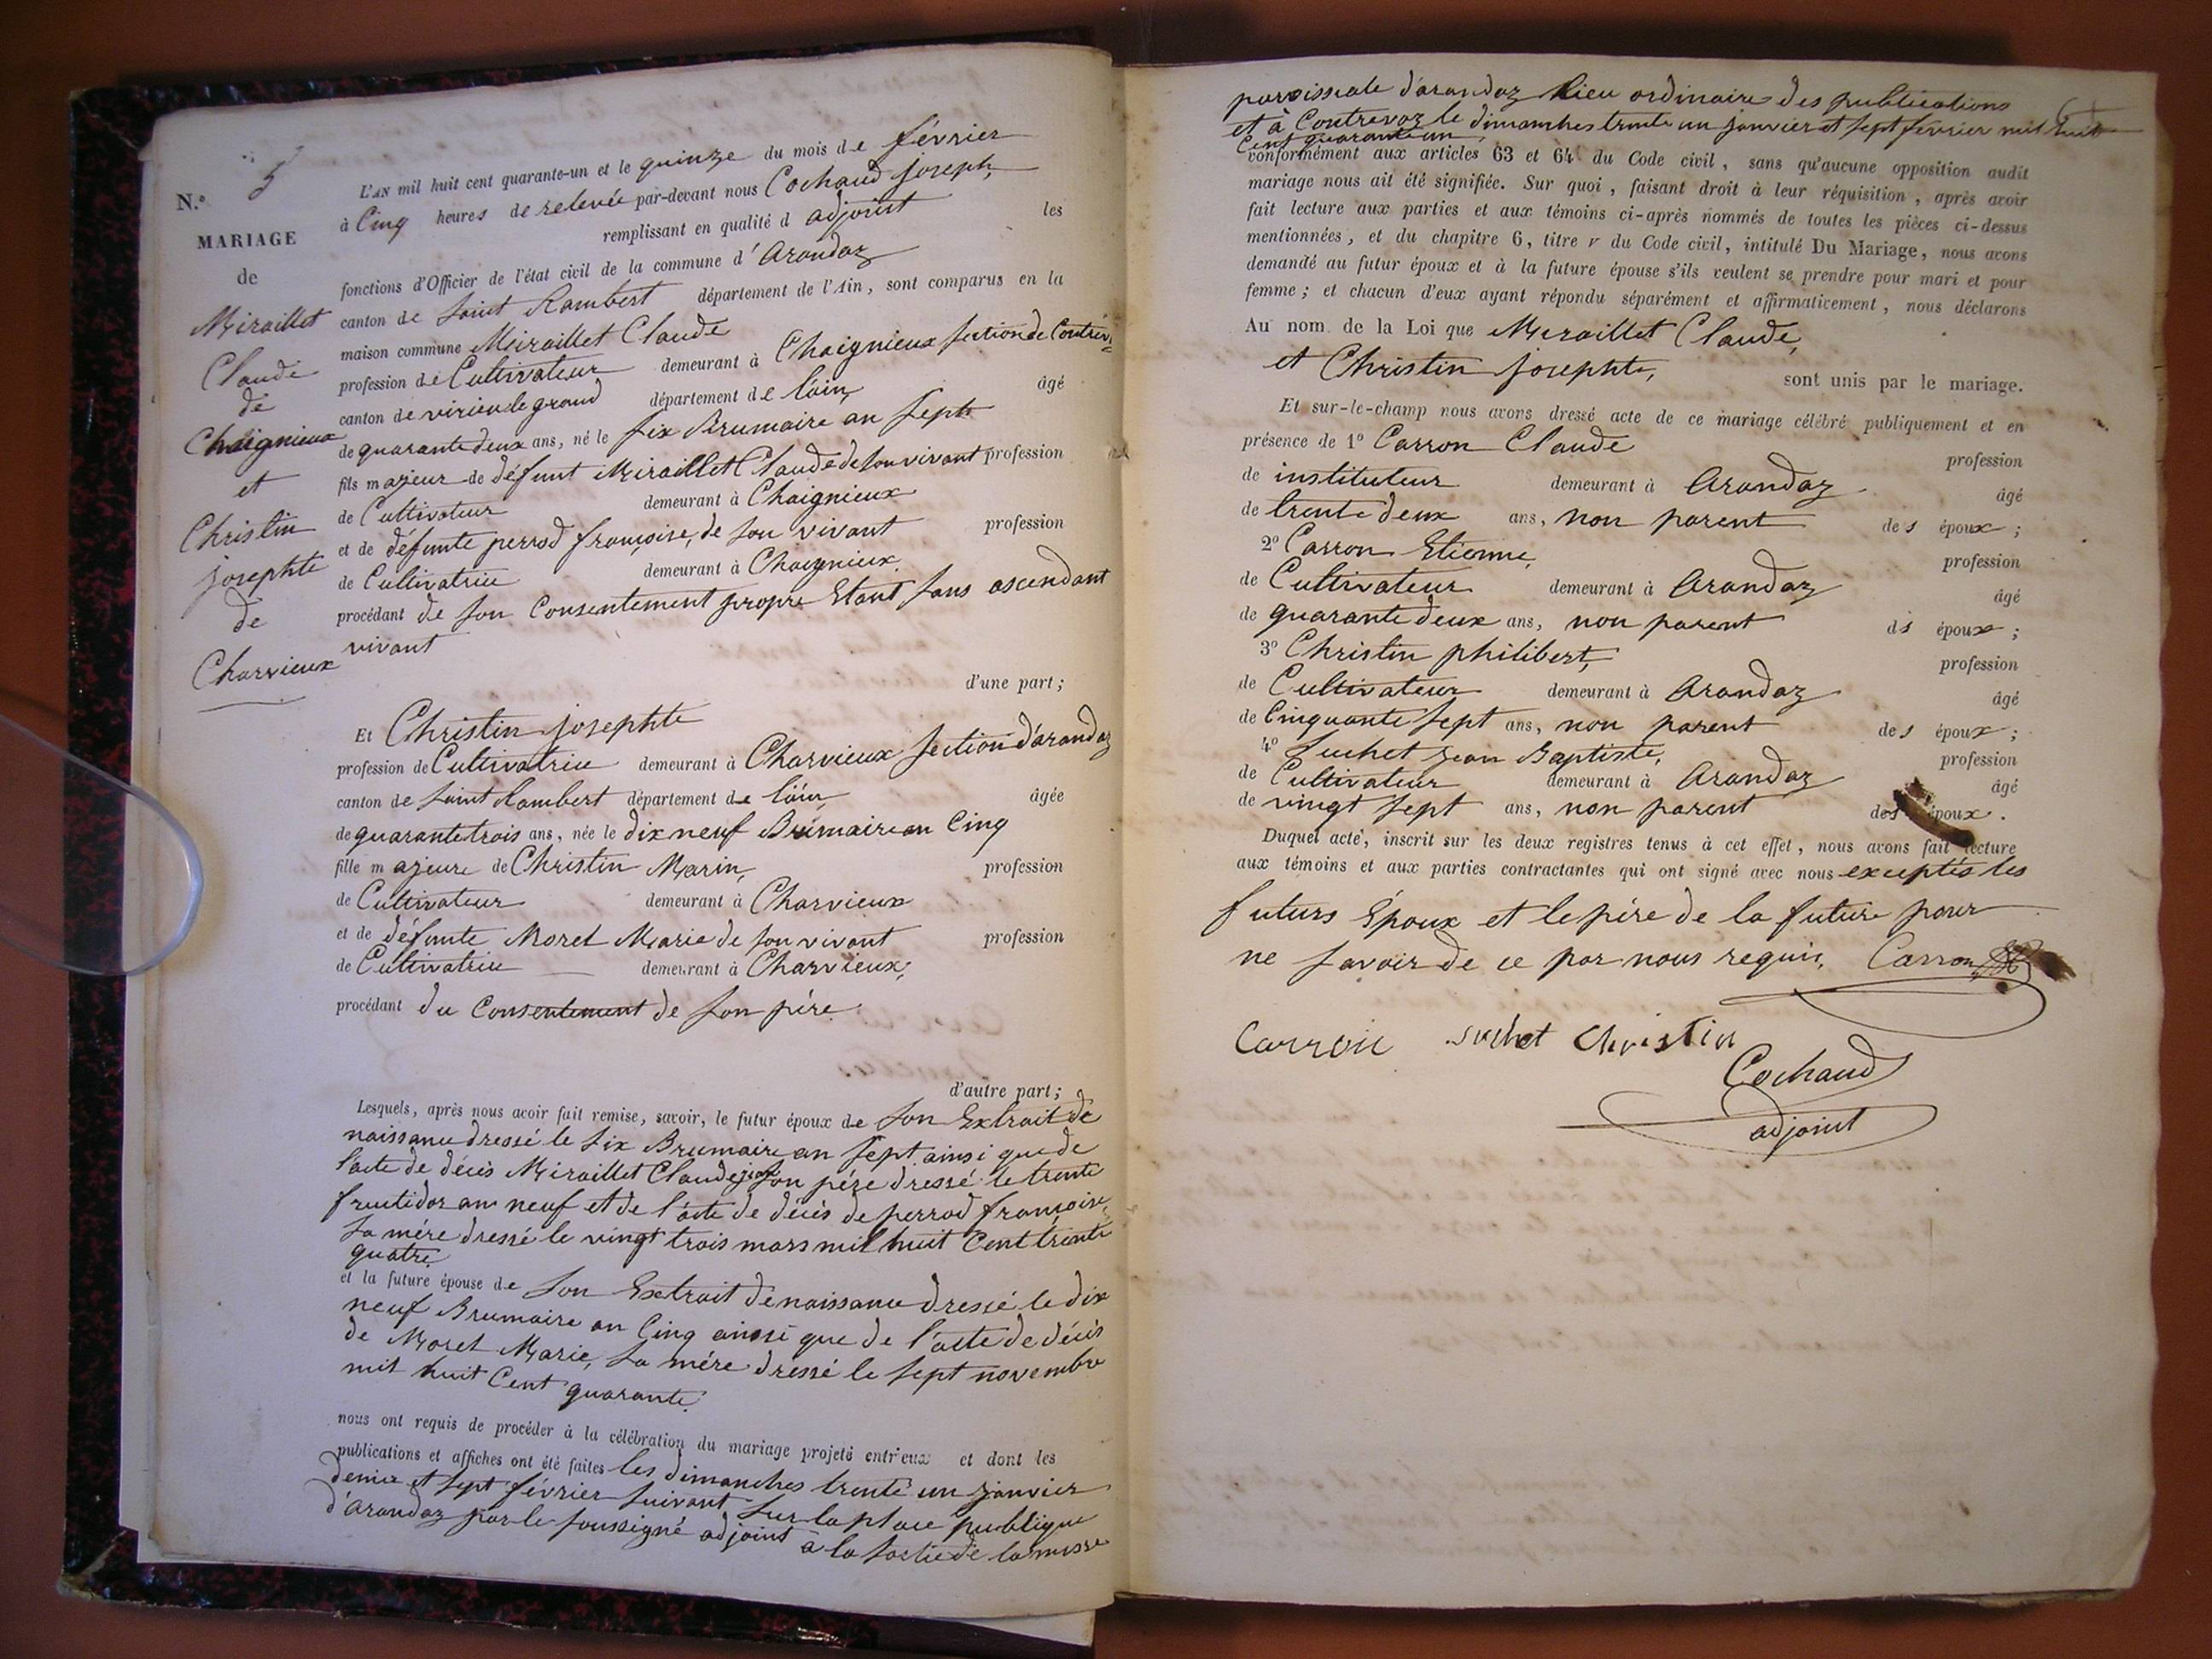 N.° 5
MARIAGE
de
Miraillet
Claude
de
Chaignieux
et
Christin
josephte
de
Charvieux
L'AN mil huit cent quarante-un et le quinze du mois de février
à Cinq heures de relevée par-devant nous Cochaud joseph,
remplissant en qualité d adjoint les
fonctions d'Officier de l'état civil de la commune d' Arandaz
canton de Saint Rambert département de l'Ain, sont comparus en la
maison commune Miraillet Claude
profession de Cultivateur demeurant à Chaignieux section de Contrev=
canton de virieu le grand département de l'ain, âgé
de quarante deux ans, né le six Brumaire an Sept
fils majeur de défunt Miraillet Claude de son vivant profession
de Cultivateur demeurant à Chaignieux
et de défunte perrod françoise, de son vivant profession
de Cultivatrice demeurant à Chaignieux,
procédant de son Consentement propre Etant sans ascendant
vivant
d'une part;
Et Christin josephte
profession de Cultivatrice demeurant à Charvieux section d'arandaz
canton de Saint Rambert département de l'ain, âgée
de quarante trois ans, née le dix neuf Brumaire an Cinq
fille majeure de Christin Marin, profession
de Cultivateur demeurant à Charvieux
et de défunte Moret Marie de son vivant profession
de Cultivatrice demeurant à Charvieux,
procédant du Consentement de son père
d'autre part;
Lesquels, après nous avoir fait remise, savoir, le futur époux de son Extrait de
naissance dressé le six Brumaire an Sept ainsi que de
l'acte de décès Miraillet Claude son père dressé le trente
fructidor an neuf et de l'acte de décès de perrod françoise,
sa mère dressé le vingt trois mars mil huit Cent trente
quatre
et la future épouse de son Extrait de naissance dressé le dix
neuf Brumaire an Cinq ainsi que de l'acte de décès
de Moret Marie, sa mère dressé le sept novembre
mil huit Cent quarante.
nous ont requis de procéder à la célébration du mariage projeté entr'eux et dont les
publications et affiches ont été faites les dimanches trente un janvier
dernier et sept février suivant sur la place publique
d'arandaz par le soussigné adjoint à la sortie de la messe
paroissiale d'arandaz lieu ordinaire des publications
et à Contrevoz le dimanches trente un janvier et sept février mil huit
Cent quarante un,
conformément aux articles 63 et 64 du Code civil, sans qu'aucune opposition audit
mariage nous ait été signifiée. Sur quoi, faisant droit à leur réquisition, après avoir
fait lecture aux parties et aux témoins ci-après nommés de toutes les pièces ci-dessus
mentionnées, et du chapitre 6, titre v du Code civil, intitulé Du Mariage, nous avons
demandé au futur époux et à la future épouse s'ils veulent se prendre pour mari et pour
femme; et chacun d'eux ayant répondu séparément et affirmativement, nous déclarons
Au nom de la Loi que Miraillet Claude,
et Christin josephte, sont unis par le mariage.
Et sur-le-champ nous avons dressé acte de ce mariage célébré publiquement et en
présence de 1° Carron Claude profession
de instituteur demeurant à Arandaz âgé
de trente deux ans, non parent des époux;
2° Carron Etienne, profession
de Cultivateur demeurant à Arandaz âgé
de quarante deux ans, non parent ds époux;
3° Christin philibert, profession
de Cultivateur demeurant à Arandaz âgé
de Cinquante Sept ans, non parent des époux;
4° Suchet Jean Baptiste, profession
de Cultivateur demeurant à Arandaz âgé
de vingt Sept ans, non parent des époux.
Duquel acte, inscrit sur les deux registres tenus à cet effet, nous avons fait lecture
aux témoins et aux parties contractantes qui ont signé avec nous exceptés les
futurs Époux et le père de la future pour
ne savoir de ce par nous requis, Carron
Carron suchet Christin
Cochaud
adjoint